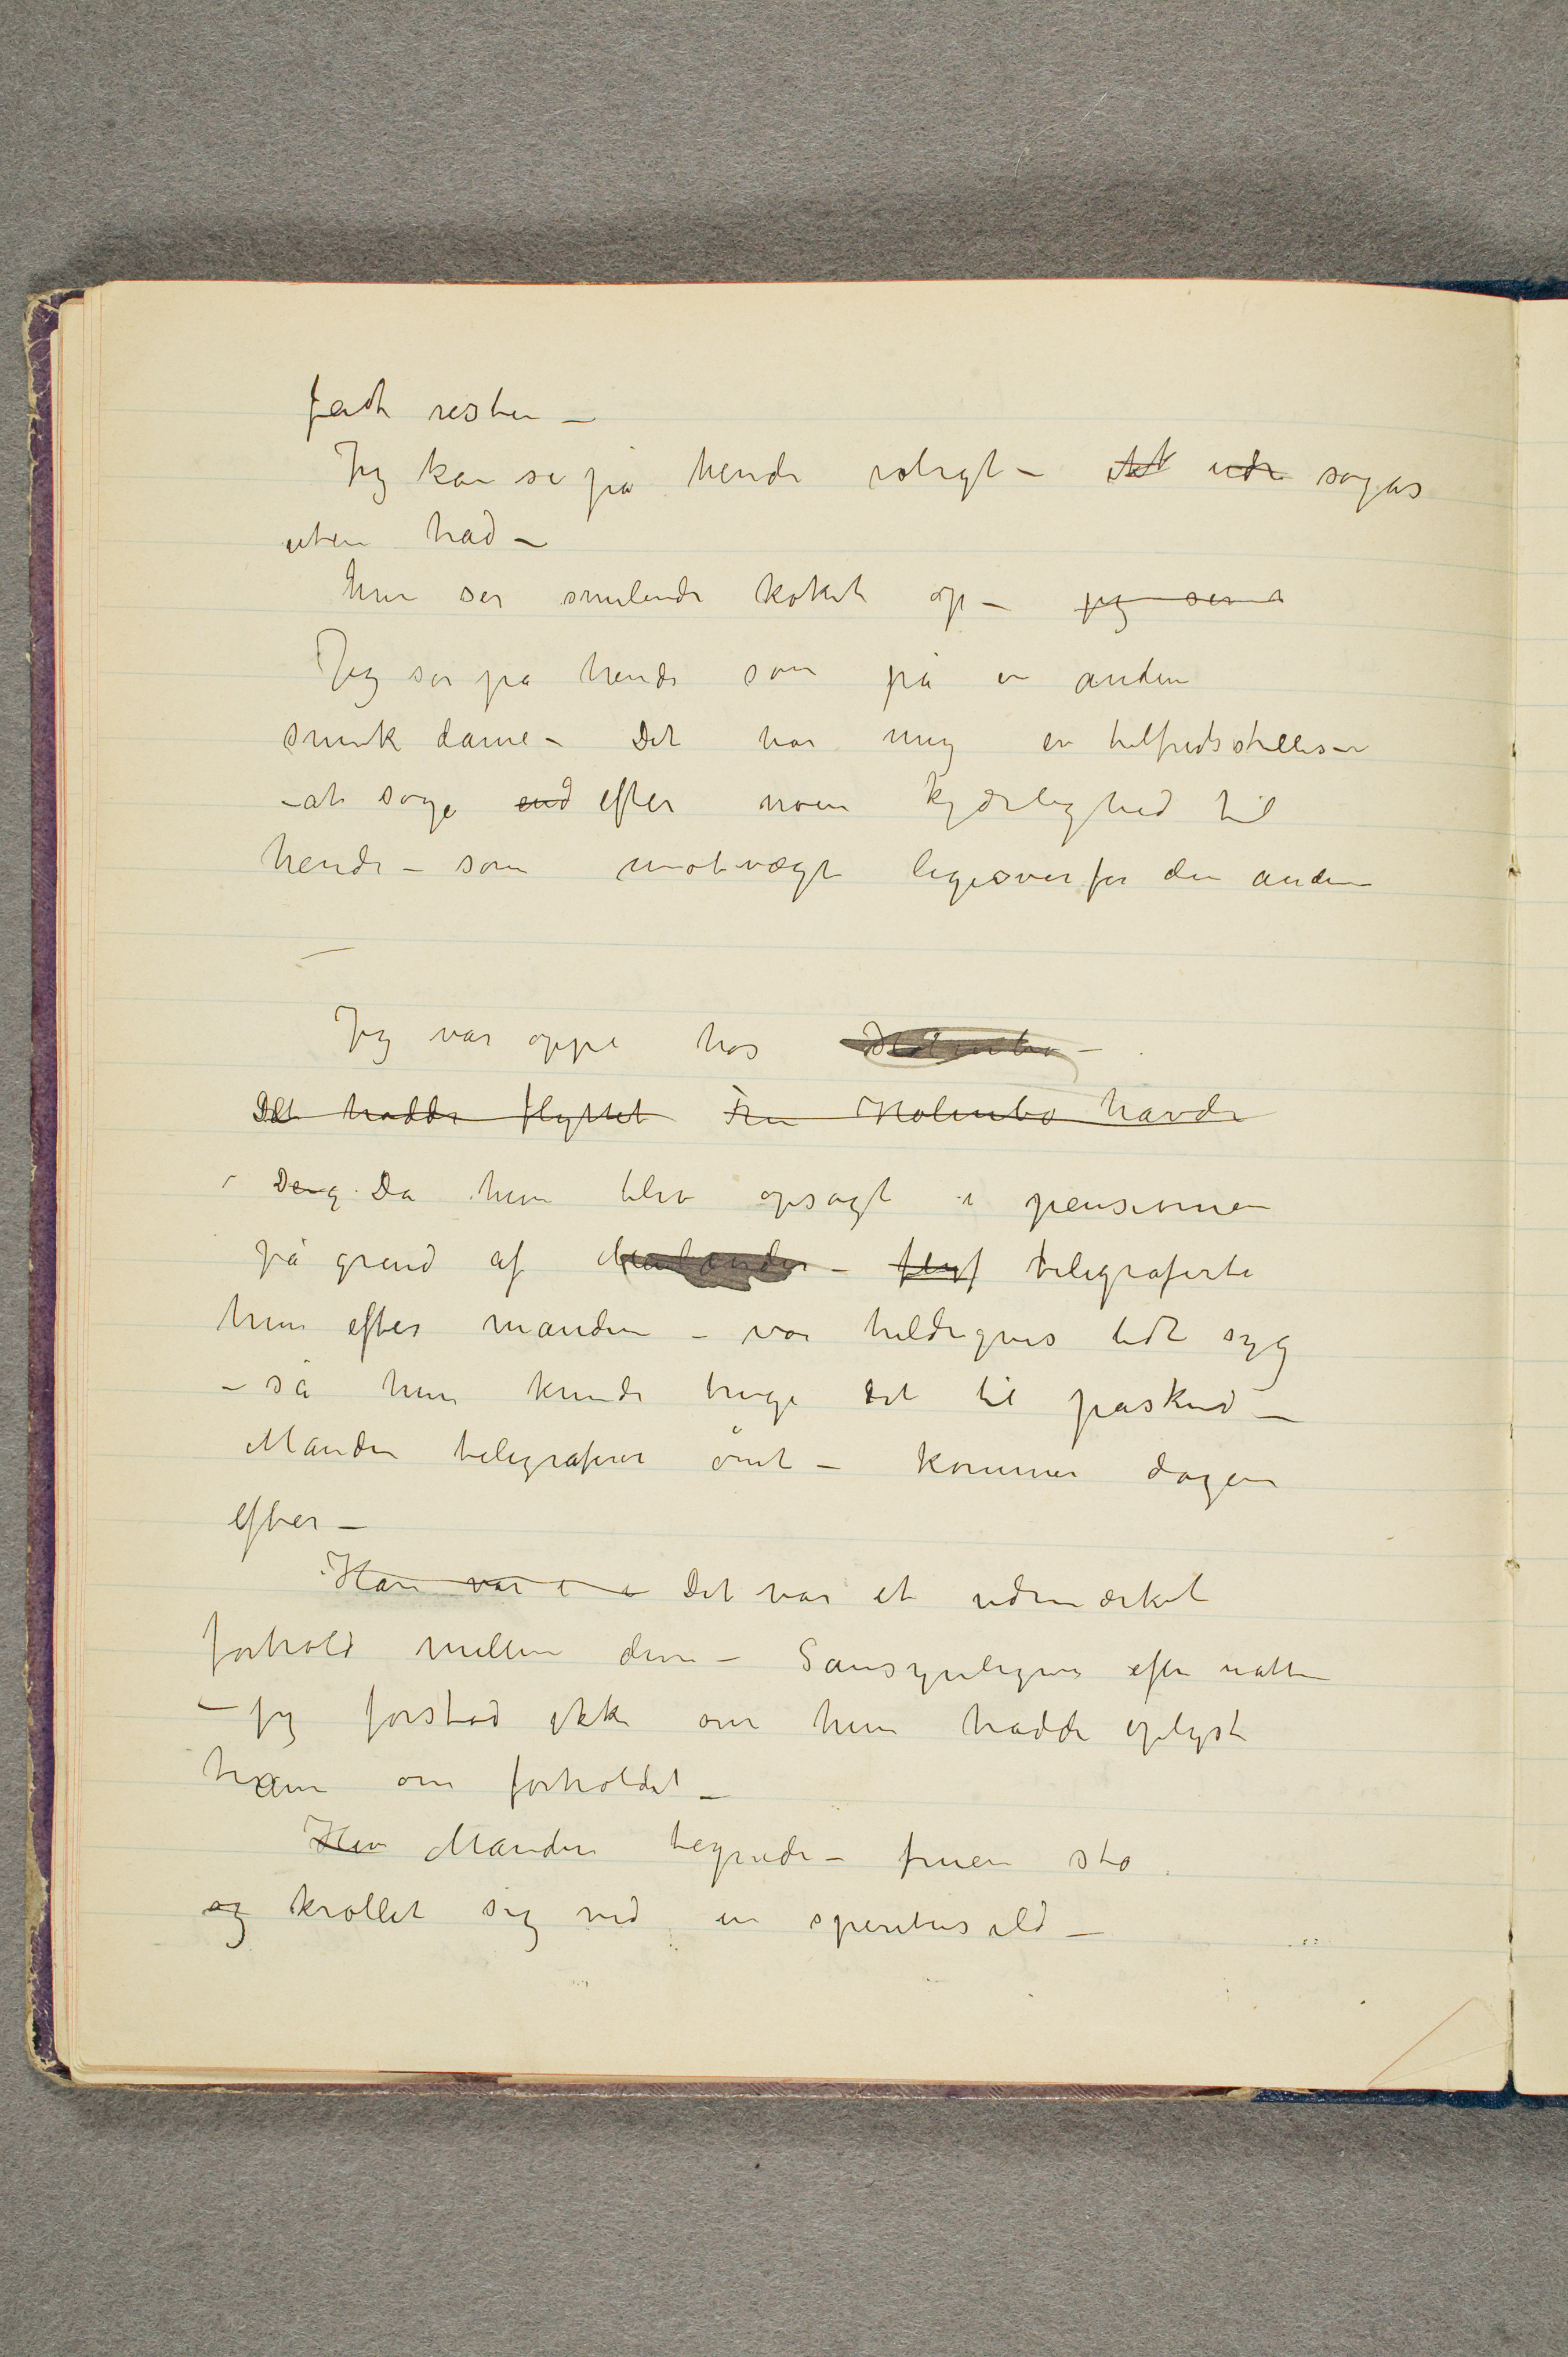 fåt resten –
Jeg kan se på hende roligt – ikk uden sogas
uten had –
hun ser smilende koket op – jeg ser
Jeg ser på hende som på en anden
smuk dame – Det har mig en tilfredsstillelse
– at søge end efter noen kjærlighed til
hende – som motvægt ligeoverfor den anden
–
Jeg var oppe hos Holmbo –
Det hadde flyttet Fru Holmbo havde
– Deng Da hun blev opsøgt i pensionen
på grund af – flyt telegraferte
hun efter manden – var heldigvis lidt syg
– så hun kunde bruge det til påskud –
Manden telegraferer ömt – kommer dagen
efter –
Han var i Det var et udmærket
forhold mellem dem – Sansynligvis efter natten
– jeg forstod ikke om hun hadde oplyst
ham om forholdet –
Manden tegnede – fruen sto
og krøllet sig ved en speritusild –